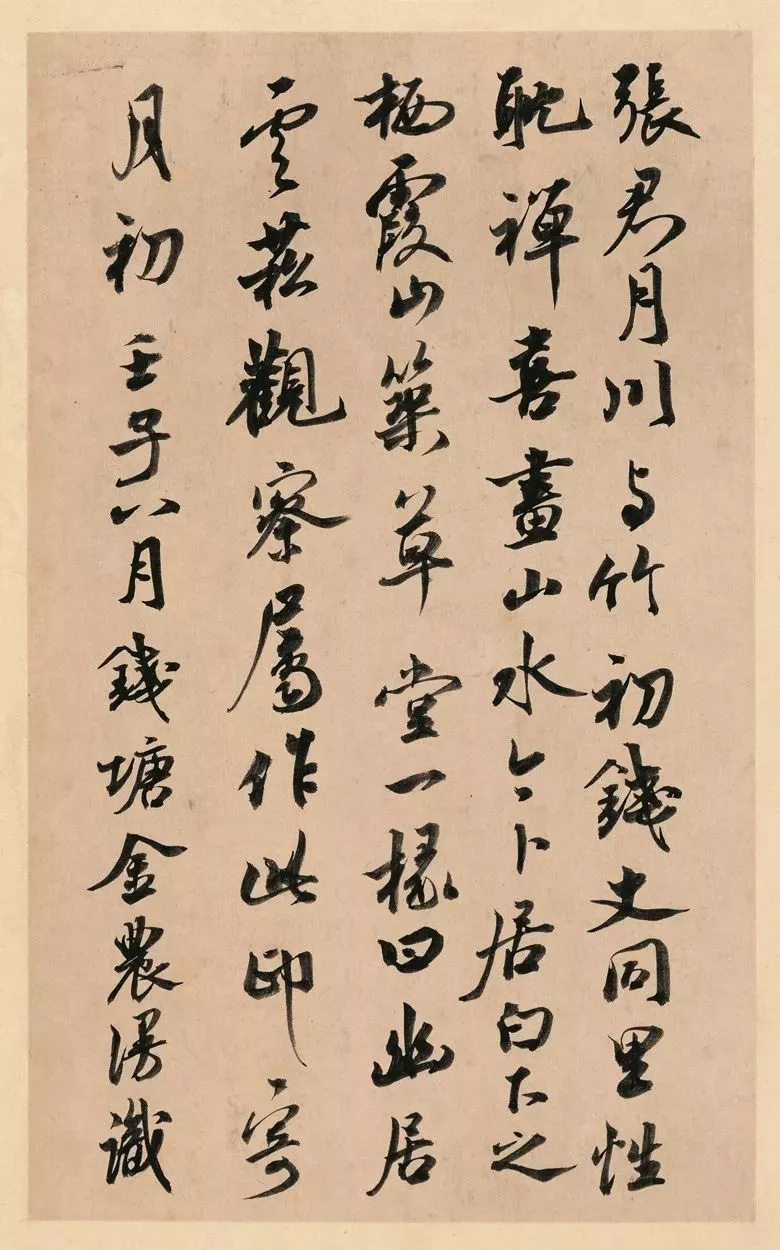 張君月川与竹初錢丈同里性
耽禪喜畫山水今卜居白下之
栖霞山築草堂一椽曰幽居
雲菘觀察屬作此印寄
月初壬子八月錢塘金農漫識